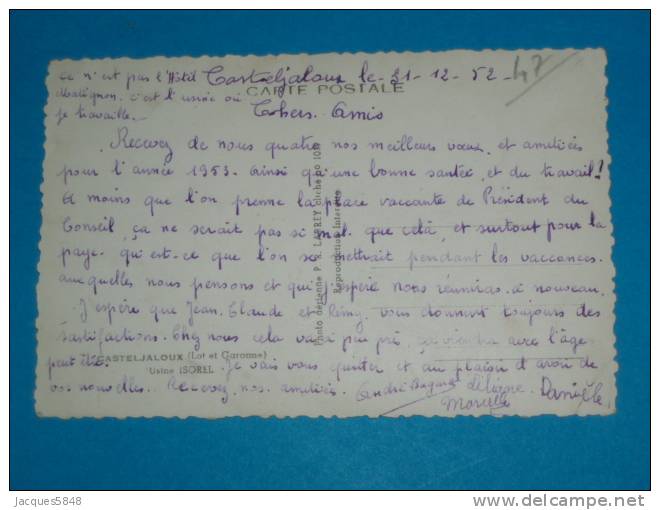 ce n'est pas l'Hôtel Casteljaloux le 31-12-52 - 47
Matignon. c'est l'usine où CARTE POSTALE
je travaille. Chers Amis
Recevez de nous quatre nos meilleurs vœux et amitiés
pour l'année 1953. Ainsi qu'une bonne santée, et du travail!
A moins que l'on prenne la place vaccante de Président du
Conseil, ça ne serait pas si mal que celà, et surtout pour la
paye. qu'est-ce que l'on se mettrait pendant les vaccances.
auxquelles nous pensons et qui j'espère nous réuniras à nouveau.
J'espère que Jean, Claude et Rémy vous donnent toujours des
sastifactions. Chez nous cela va à peu pré, ça viendra avec l'âge
peut être. Je vais vous quitter et au plaisir d'avoir de
vos nouvelles. Recevez nos amitiés. André Marcelle Danièle
CASTELJALOUX (Lot et Garonne)
Usine ISOREL
Photo aérienne P. R. LABREY cliché no 109
Reproduction Interdite
Jacques5848
delcampe.net